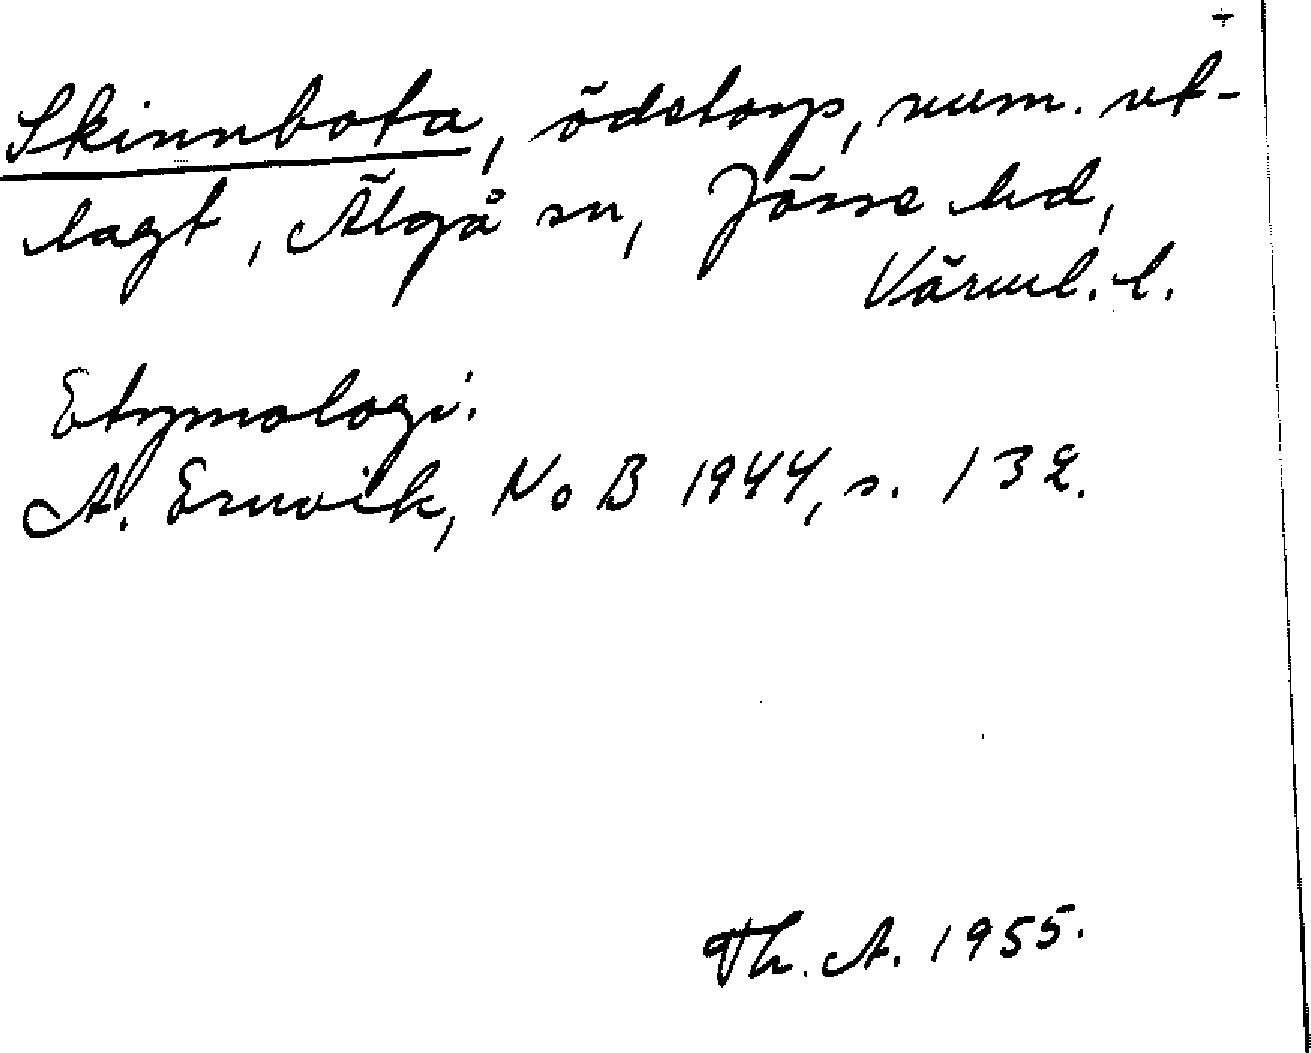 +
Skinnbota, ödetorp, num. ut-
lagt, Älgå sn, Jösse hd,
Värml. l.
Etymologi:
A. Ernvik, NoB 1944, s. 132.
Th. A. 1955.